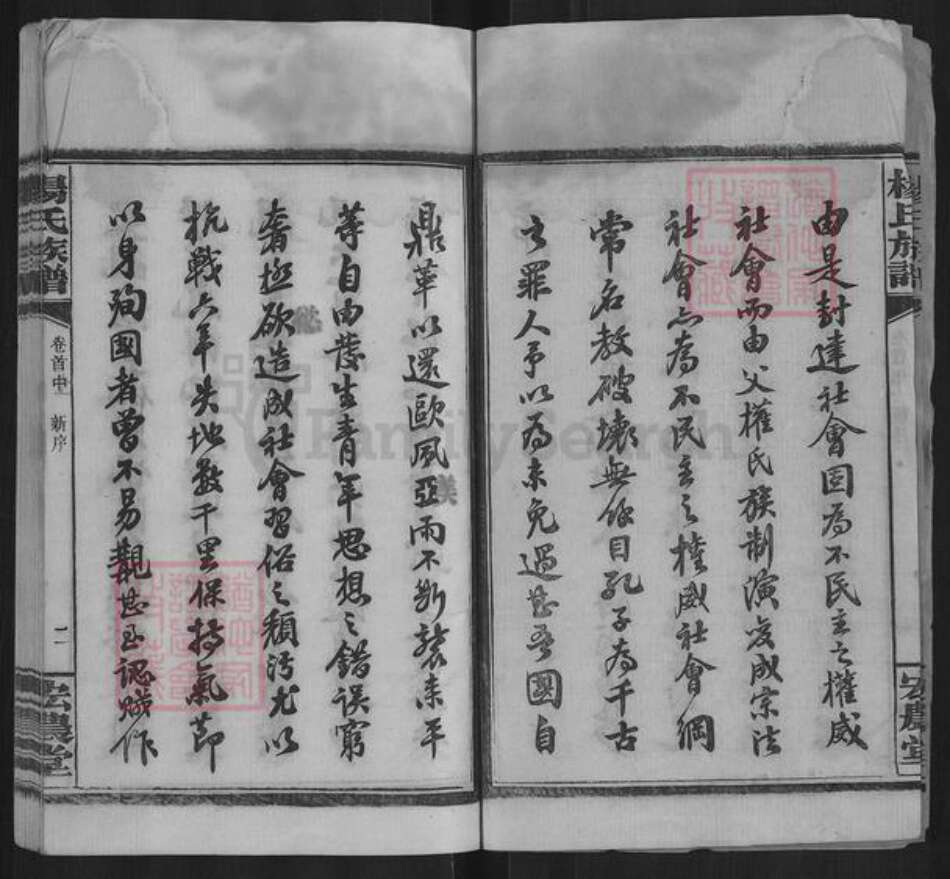 楊氏族譜
由是封建社會固為不民主之權威
社會而由父權氏族制演变成宗法
社會亦為不民主之權威社會綱
常名教破壞無餘目孔子為千古
之罪人予以為未免過甚吾國自
宏農堂
鼎革以還歐風亞雨不斷襲來平
等自由發生青年思想之錯誤窮
奢極欲造成社會習俗之頹污尤以
抗戰六年失地數千里保持氣節
以身殉國者曾不易觀甚至認賊作
楊氏族譜
卷首中 新序
二
宏農堂
FamilySearch